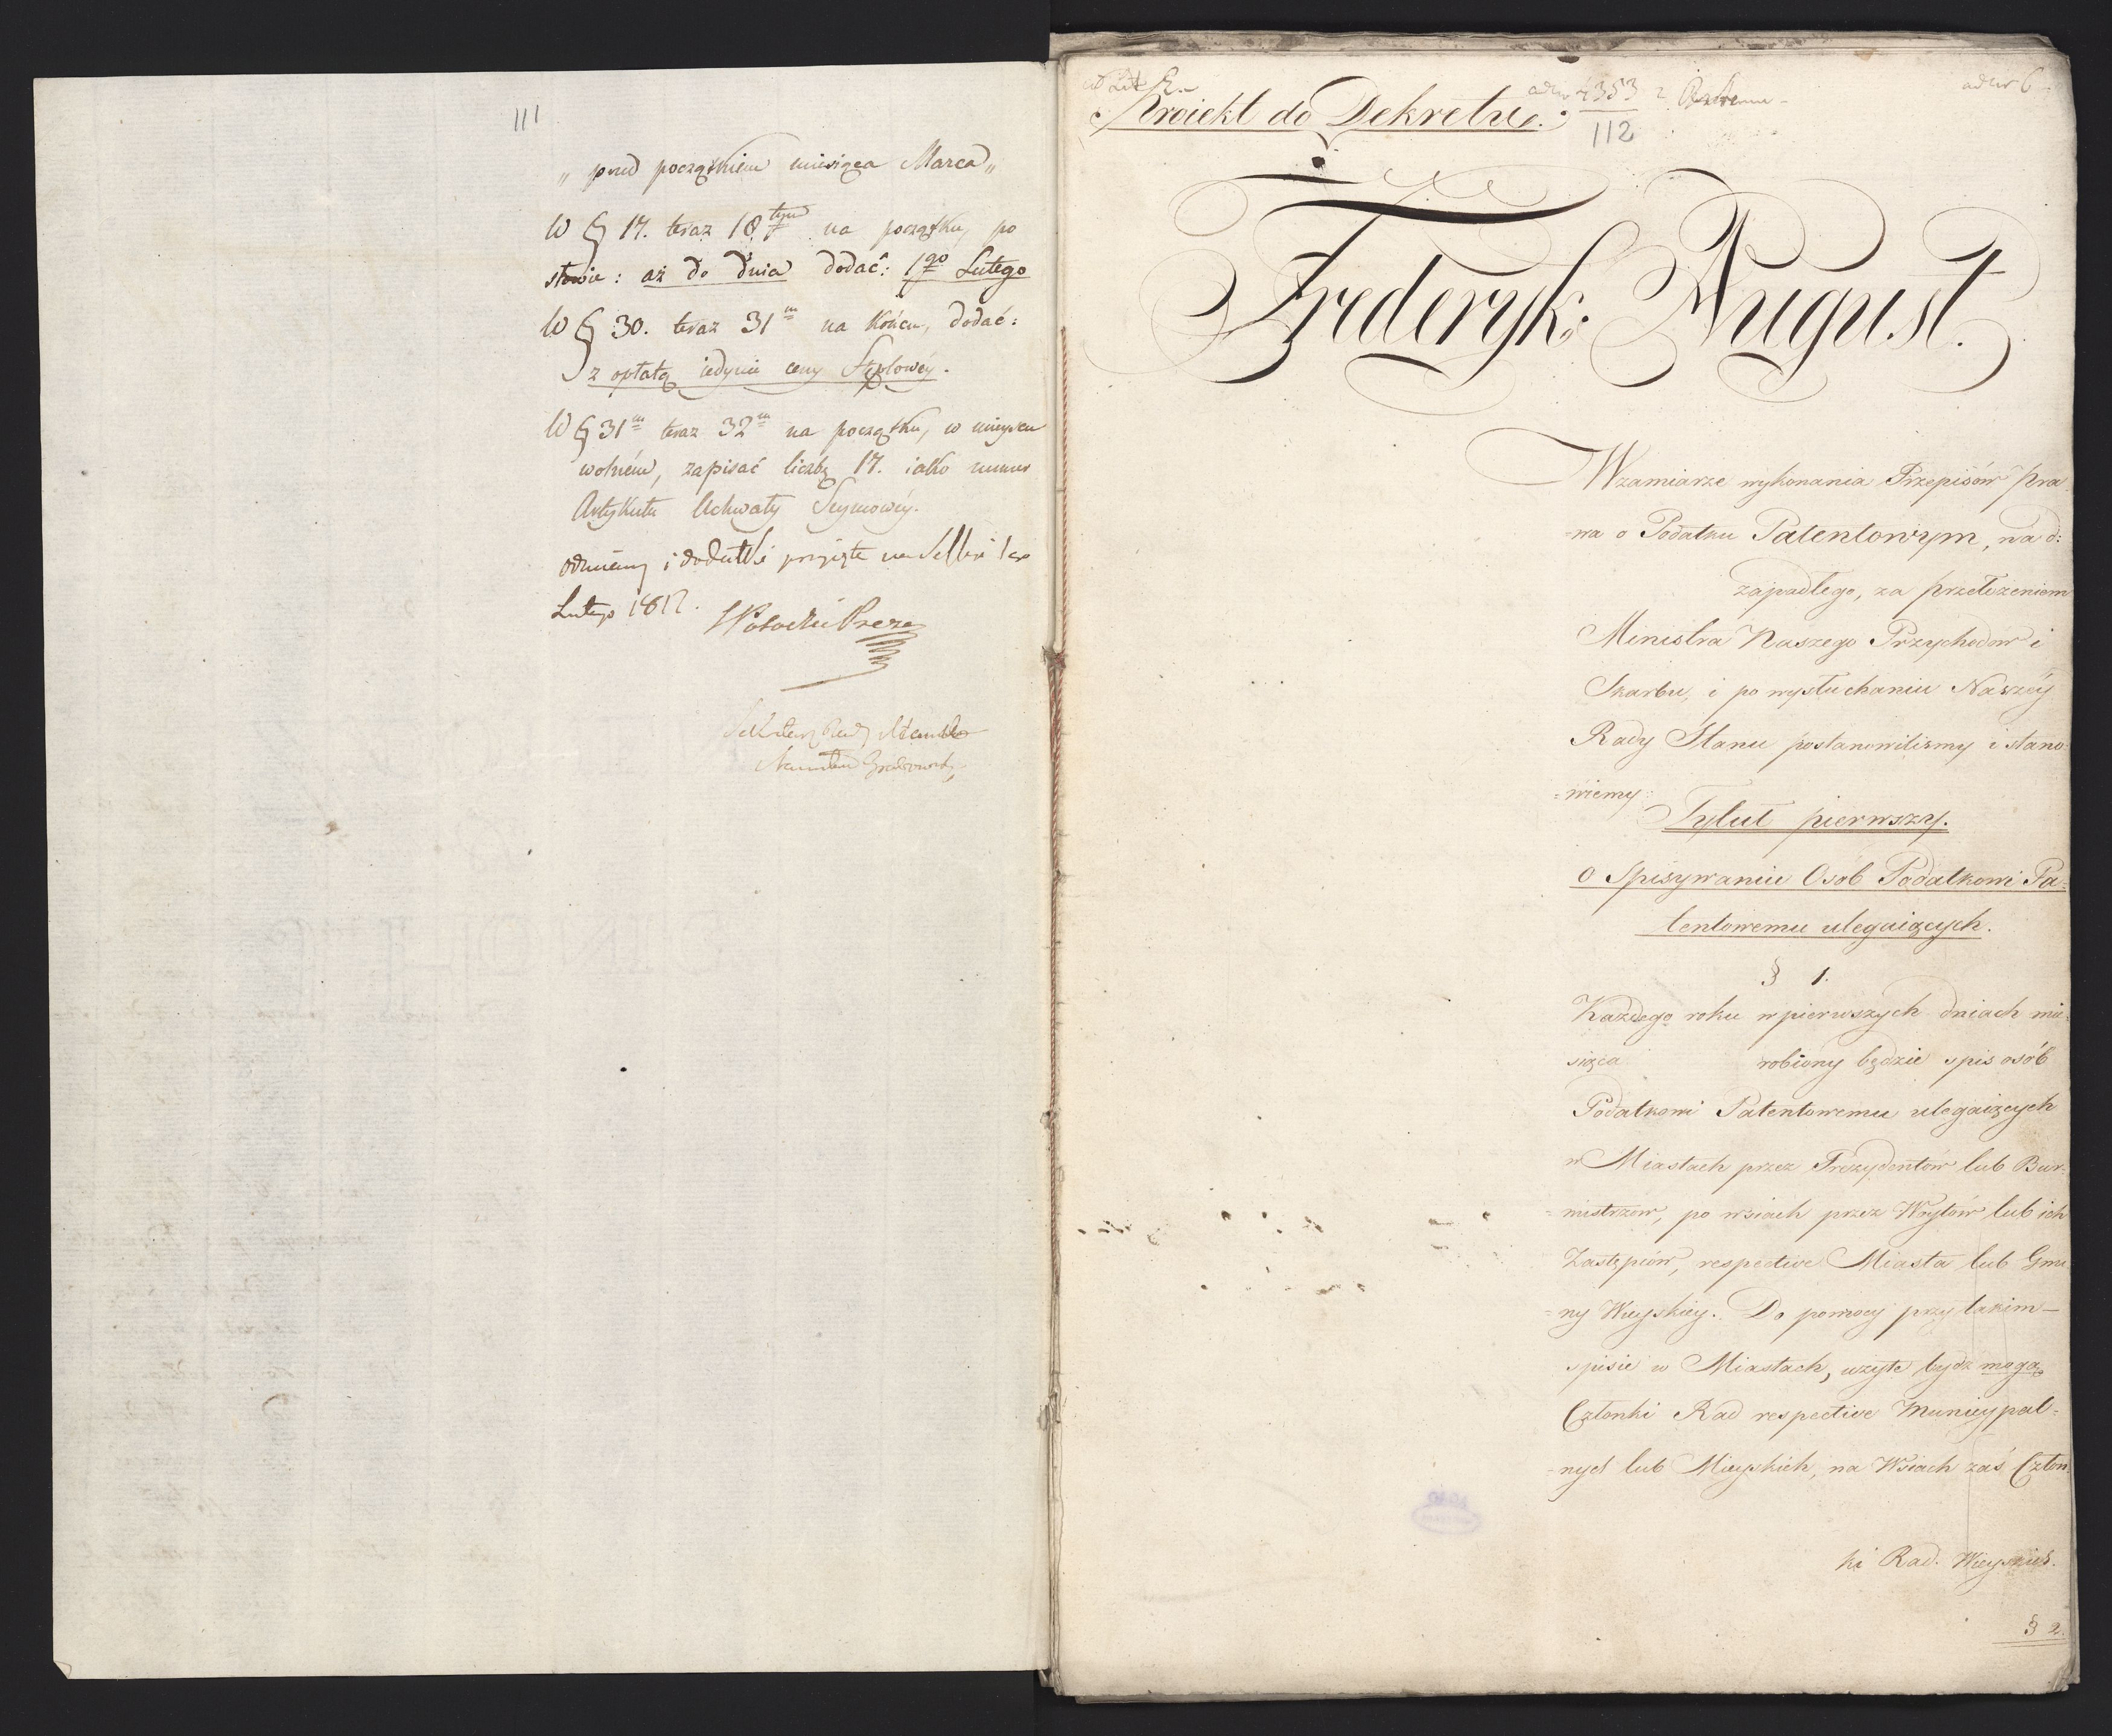 111
„ przed początkiem miesiąca Marca „
W § 17. teraz 18tym na początku, po
słowie: aż do dnia dodać: 1go Lutego
W § 30. teraz 31m na końcu, dodać:
z opłatą iedynie ceny Stęplowéy.
W § 31m teraz 32m na początku, w mieyscu
wolném, zapisać liczbę 17. iako numer
Artykułu Uchwały Seymowéy.
odmiany i dodatki przyięte na Sessyi
Lutego 1812.
Potocki Prezes
Sekretarz Rady Stanu
Proiekt do Dekretu.
4353
112
ad Nr 6
Fryderyk August.
W zamiarze wykonania Przepisów Pra
=wa o Podatku Patentowym, na d:
zapadłego, za przełożeniem
Ministra Naszego Przychodów i
Skarbu, i po wysłuchaniu Naszéy
Rady Stanu postanowilismy i stano=
=wiemy:
Tytuł pierwszy.
O Spisywaniu Osób Podatkowi Pa=
tentowemu ulegaiących.
§ 1.
Każdego roku w pierwszych dniach mie=
siąca robiony będzie spis osób
Podatkowi Patentowemu ulegaiących
w Miastach przez Prezydentów lub Bur=
=mistrzów, po wsiach przez Wóytów lub ich
Zastępców, respective Miasta lub Gmi
=ny Wieyskiey. Do pomocy przy takim
spisie w Miastach, użyte bydz mogą
Członki Rad respective Municypal=
=nych lub Mieyskich, na Wsiach zaś Człon
ki Rad. Wieyskich.
§ 2.